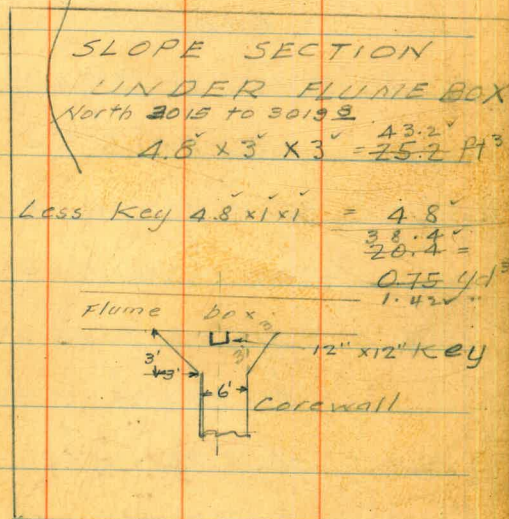 SLOPE SECTION
UNDER FLUME BOX
North 3015 to 3019 8
43.2
4.8 x 3 x 3 = 25.2 ft³
Less Key 4.8 x 1 x 1 = 4.8
38.4
20.4 =
0.75 yd³
1.42 "
Flume box
3'
3'
12" x 12" Key
3'
6'
Corewall